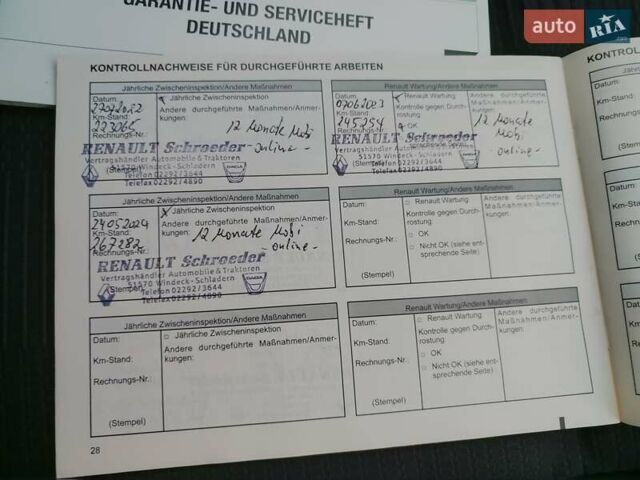 GARANTIE- UND SERVICEHEFT
DEUTSCHLAND
auto RIA.com
KONTROLLNACHWEISE FÜR DURCHGEFÜHRTE ARBEITEN
Jährliche Zwischeninspektion/Andere Maßnahmen
Datum:
Km-Stand:
223065
Rechnungs-Nr.:
(Stempel)
Jährliche Zwischeninspektion
Andere durchgeführte Maßnahmen/Anmerkungen:
12 Monate Mobi
-online-
RENAULT Schroeder
Vertragshändler Automobile & Traktoren
51570 Windeck-Schladern
Telefon 02292/3644
Telefax 02292/4890
Renault Wartung/Andere Maßnahmen
Datum:
07062023
Km-Stand:
245254
Rechnungs-Nr.:
(Stempel)
Renault Wartung
Kontrolle gegen Durchrostung
OK
sprechende Seite)
Andere durchgeführte
Maßnahmen/Anmerkungen:
12 Monate
Mobi
-online-
RENAULT Schroeder
Vertragshändler Automobile & Traktoren
51570 Windeck-Schladern
Telefon 02292/3644
Telefax 02292/4890
Jährliche Zwischeninspektion/Andere Maßnahmen
Datum:
24052024
Km-Stand:
267282
Rechnungs-Nr.:
(Stempel)
Jährliche Zwischeninspektion
Andere durchgeführte Maßnahmen/Anmerkungen:
12 Monate Mobi
-online-
RENAULT Schroeder
Vertragshändler Automobile & Traktoren
51570 Windeck-Schladern
Telefon 02292/3644
Telefax 02292/4890
DACIA
Renault Wartung/Andere Maßnahmen
Datum:
Km-Stand:
Rechnungs-Nr.:
(Stempel)
Renault Wartung
Kontrolle gegen Durchrostung
OK
Nicht OK (siehe entsprechende Seite)
Andere durchgeführte
Maßnahmen/Anmerkungen:
Jährliche Zwischeninspektion/Andere Maßnahmen
Datum:
Km-Stand:
Rechnungs-Nr.:
(Stempel)
Jährliche Zwischeninspektion
Andere durchgeführte Maßnahmen/Anmerkungen:
Renault Wartung/Andere Maßnahmen
Datum:
Km-Stand:
Rechnungs-Nr.:
(Stempel)
Renault Wartung
Kontrolle gegen Durchrostung
OK
Nicht OK (siehe entsprechende Seite)
Andere durchgeführte
Maßnahmen/Anmerkungen:
28
KONTROLL